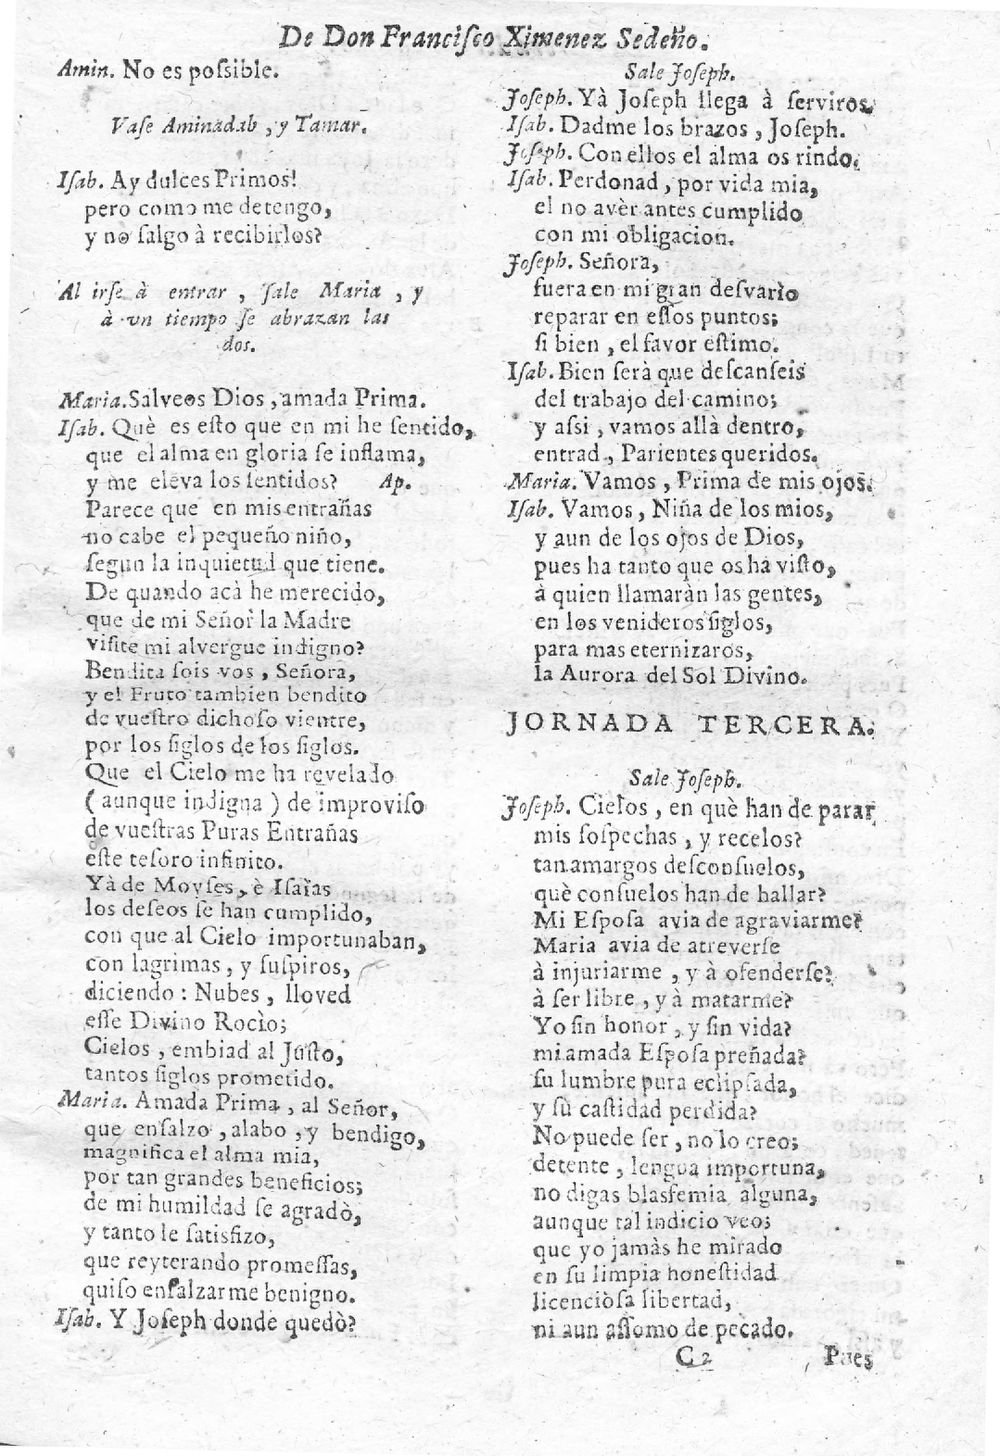 De Don Franciſco Ximenez Sedeño.
Amin. No es poſsible.
Vaſe Aminadab, y Tamar.
Iſab. Ay dulces Primos!
pero como me detengo,
y no ſalgo à recibirlos?
Al irſe à entrar, ſale Maria, y
à un tiempo ſe abrazan las
dos.
Maria. Salveos Dios, amada Prima.
Iſab. Què es eſto que en mi he ſentido,
que el alma en gloria ſe inflama,
y me eleva los ſentidos? Ap.
Parece que en mis entrañas
no cabe el pequeño niño,
ſegun la inquietud que tiene.
De quando acà he merecido,
que de mi Señor la Madre
viſite mi alvergue indigno?
Bendita ſois vos, Señora,
y el Fruto tambien bendito
de vueſtro dichoſo vientre,
por los ſiglos de los ſiglos.
Que el Cielo me ha revelado
(aunque indigna) de improviſo
de vueſtras Puras Entrañas
eſte teſoro infinito.
Yà de Moyſes, è Iſaìas
los deſeos ſe han cumplido,
con que al Cielo importunaban,
con lagrimas, y ſuſpiros,
diciendo: Nubes, lloved
eſſe Divino Rocìo;
Cielos, embiad al Juſto,
tantos ſiglos prometido.
Maria. Amada Prima, al Señor,
que enſalzo, alabo, y bendigo,
magnifica el alma mia,
por tan grandes beneficios;
de mi humildad ſe agradò,
y tanto le ſatisfizo,
que reyterando promeſſas,
quiſo enſalzarme benigno.
Iſab. Y Joſeph donde quedò?
Sale Joſeph.
Joſeph. Yà Joſeph llega à ſerviros.
Iſab. Dadme los brazos, Joſeph.
Joſeph. Con ellos el alma os rindo.
Iſab. Perdonad, por vida mia,
el no avèr antes cumplido
con mi obligacion.
Joſeph. Señora,
fuera en mi gran deſvarìo
reparar en eſſos puntos;
ſi bien, el favor eſtimo.
Iſab. Bien ſerà que deſcanſeis
del trabajo del camino;
y aſsi, vamos allà dentro,
entrad, Parientes queridos.
Maria. Vamos, Prima de mis ojos.
Iſab. Vamos, Niña de los mios,
y aun de los ojos de Dios,
pues ha tanto que os ha viſto,
à quien llamaràn las gentes,
en los venideros ſiglos,
para mas eternizaros,
la Aurora del Sol Divino.
JORNADA TERCERA.
Sale Joſeph.
Joſeph. Cielos, en què han de parar
mis ſoſpechas, y recelos?
tan amargos deſconſuelos,
què conſuelos han de hallar?
Mi Eſpoſa avia de agraviarme?
Maria avia de atreverſe
à injuriarme, y à ofenderſe?
à ſer libre, y à matarme?
Yo ſin honor, y ſin vida?
mi amada Eſpoſa preñada?
ſu lumbre pura eclipſada,
y ſu caſtidad perdida?
No puede ſer, no lo creo;
detente, lengua importuna,
no digas blasfemia alguna,
aunque tal indicio veo;
que yo jamàs he mirado
en ſu limpia honeſtidad
licencioſa libertad,
ni aun aſſomo de pecado.
C 2 Pues